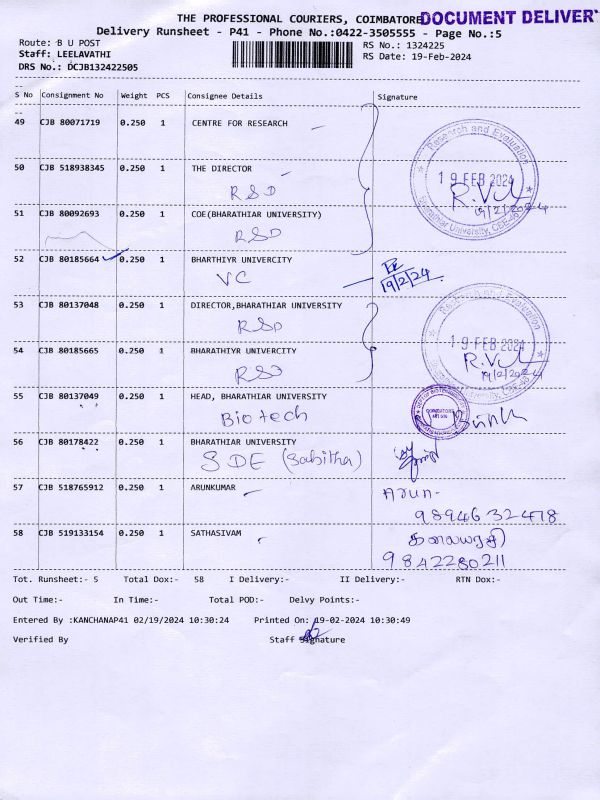 THE PROFESSIONAL COURIERS, COIMBATORE
DOCUMENT DELIVER
Delivery Runsheet - P41 - Phone No.:0422-3505555 - Page No.:5
Route: B U POST
RS No.: 1324225
Staff: LEELAVATHI
RS Date: 19-Feb-2024
DRS No.: DCJB132422505
S No Consignment No Weight PCS Consignee Details Signature
49 CJB 80071719 0.250 1 CENTRE FOR RESEARCH
Research and Evaluation
19 FEB 2024
19/2/2024
50 CJB 518938345 0.250 1 THE DIRECTOR
RSD
51 CJB 80092693 0.250 1 COE(BHARATHIAR UNIVERSITY)
RSD
52 CJB 80185664 0.250 1 BHARTHIYR UNIVERCITY
VC
19/2/24
53 CJB 80137048 0.250 1 DIRECTOR,BHARATHIAR UNIVERSITY
RSD
Research and Evaluation
19 FEB 2024
19/2/2024
54 CJB 80185665 0.250 1 BHARATHIYR UNIVERCITY
RSD
55 CJB 80137049 0.250 1 HEAD, BHARATHIAR UNIVERSITY
Biotech
56 CJB 80178422 0.250 1 BHARATHIAR UNIVERSITY
SDE (Sabitha)
57 CJB 518765912 0.250 1 ARUNKUMAR
Arun-
98946 32478
58 CJB 519133154 0.250 1 SATHASIVAM
கலையரசி
9842280211
Tot. Runsheet:- 5 Total Dox:- 58 I Delivery:- II Delivery:- RTN Dox:-
Out Time:- In Time:- Total POD:- Delvy Points:-
Entered By :KANCHANAP41 02/19/2024 10:30:24 Printed On: 19-02-2024 10:30:49
Verified By Staff Signature